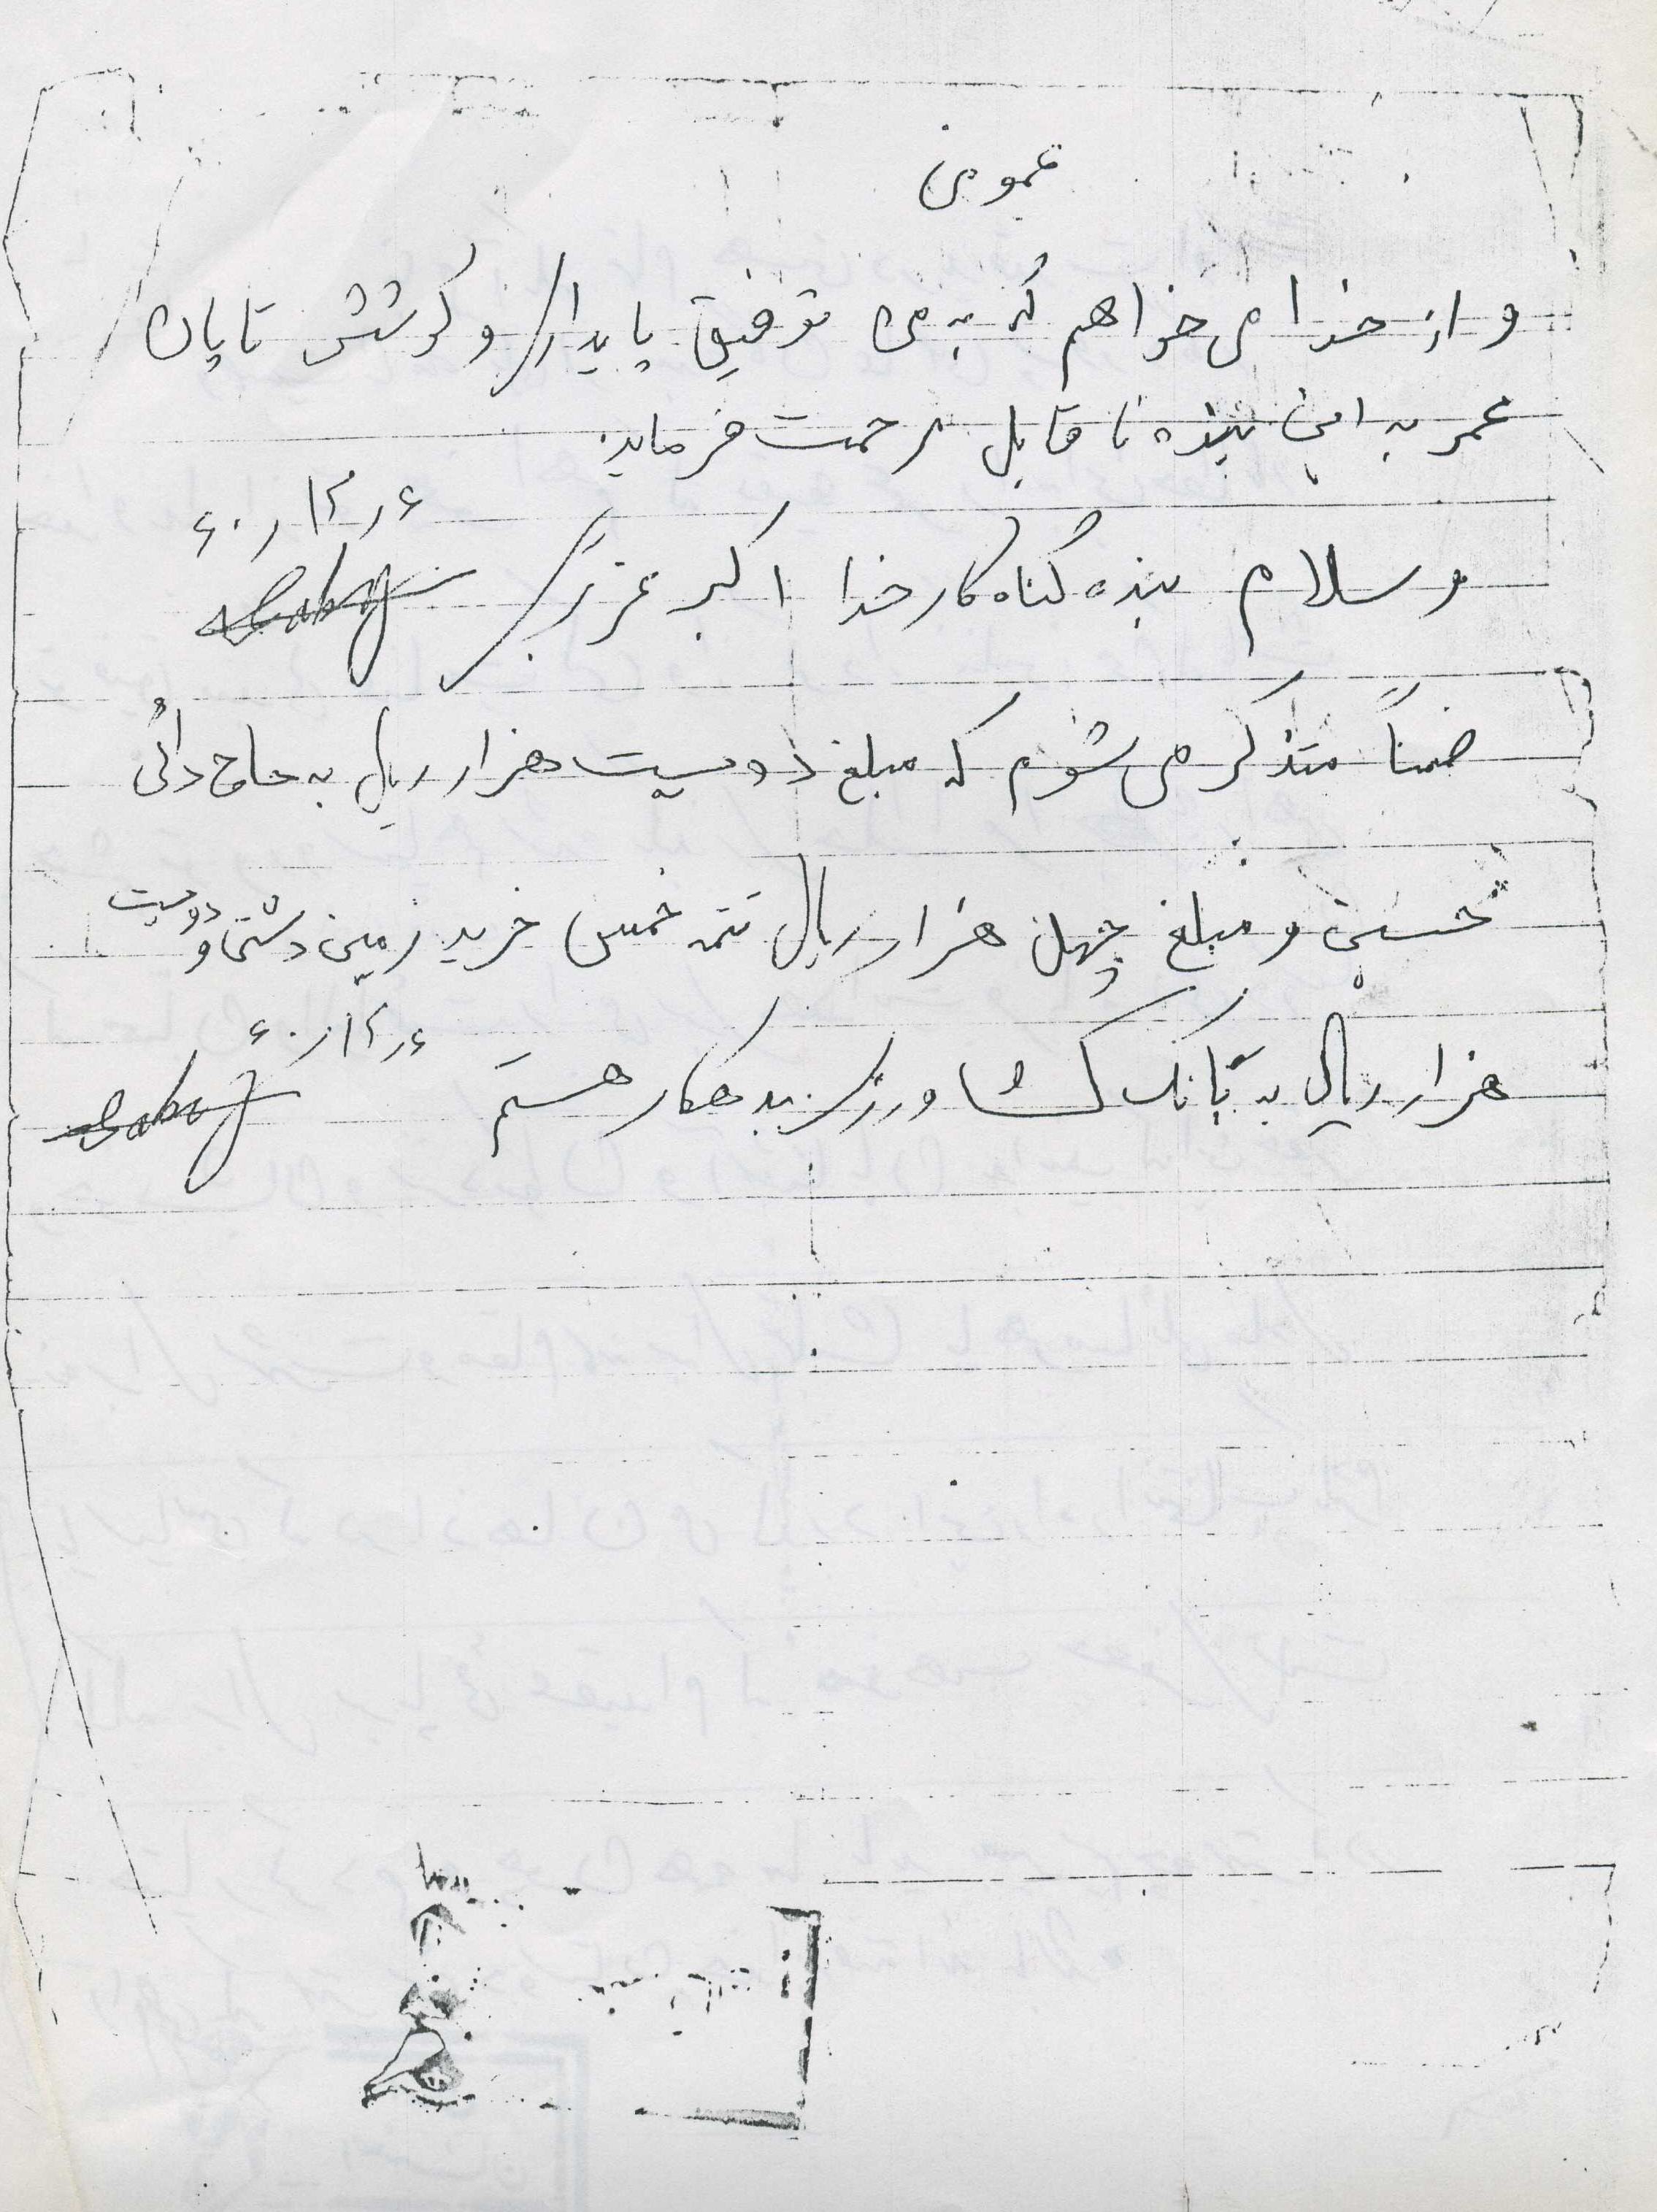 و از خدا می خواهم که به من توفیق پایداری و کوشش تا پایان
عمر به این بنده نا قابل مرحمت فرماید
۶۰/۱۲/۶
وسلام بنده گناه کار خدا اکبر عزیزی
ضمناً متذکر می شوم که مبلغ دویست هزار ریال به حاج دائی
حسنی و مبلغ چهل هزار ریال تتمه خمس خرید زمین دشتی و دویست
۶۰/۱۲/۶
هزار ریال به بانک کشاورزی بدهکار هستم